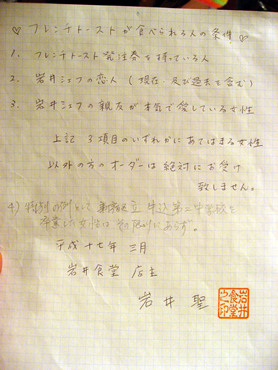 ♡ フレンチトーストが食べられる人の条件 ♡
1. フレンチトースト発注券を持っている人
2. 岩井シェフの恋人 (現在 及び過去も含む)
3. 岩井シェフの親友が本気で愛している女性
上記 3項目のいずれかにあてはまる女性
以外の方のオーダーは絶対にお受け
致しません。
4) 特別の例として 牛込第二中学校を
卒業した女性は その限りにあらず。
平成十七年 三月
岩井食堂 店主
岩井 聖
岩井食堂之印